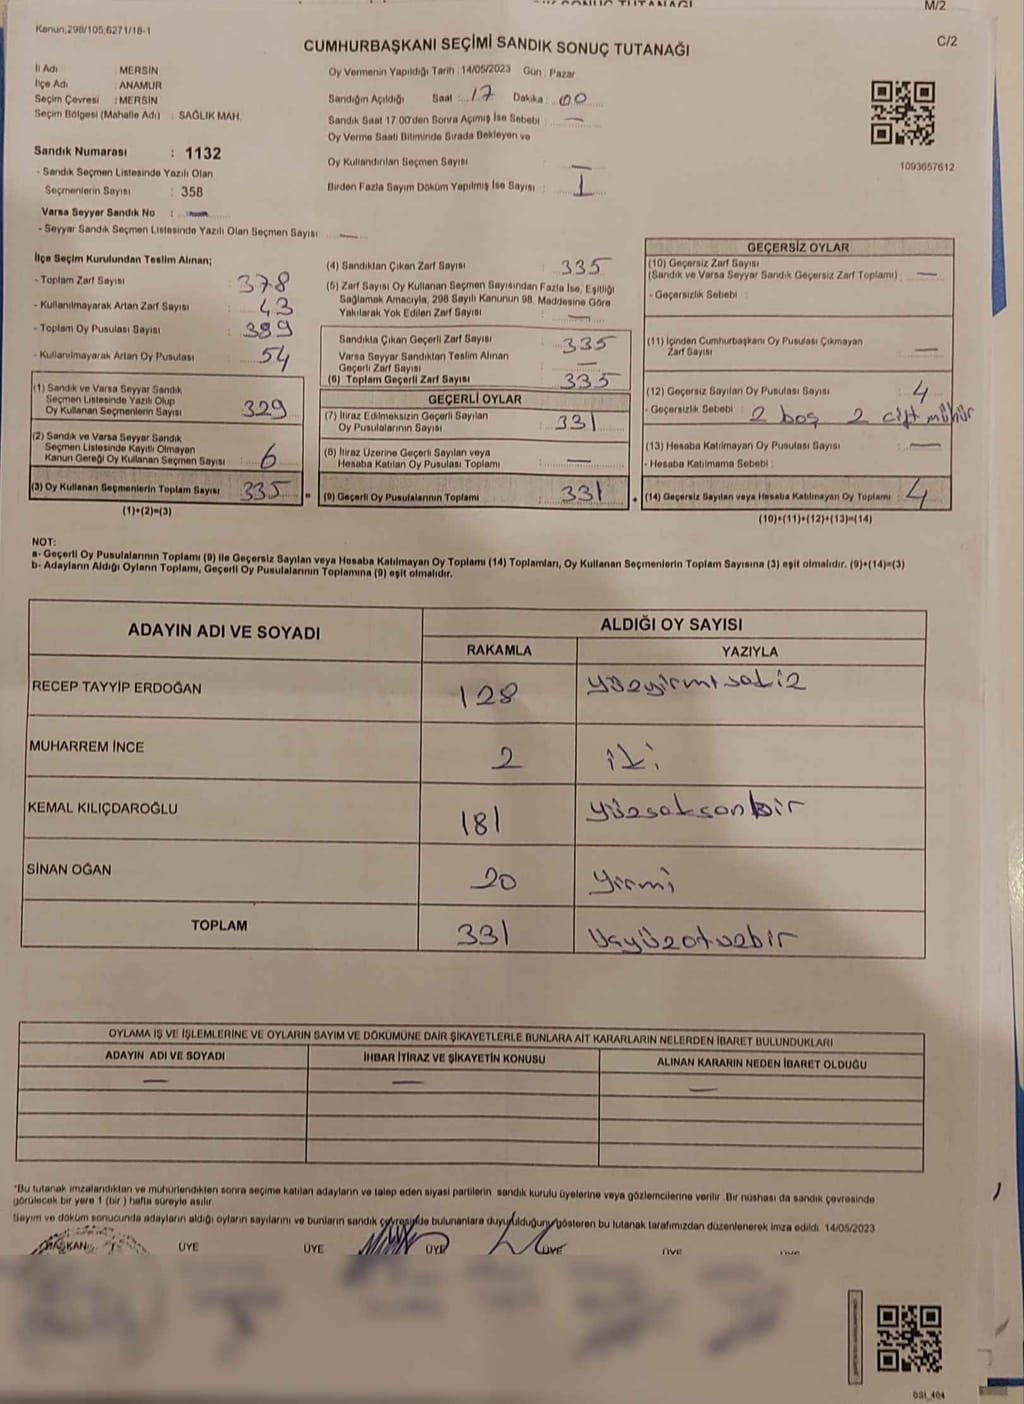 M/2
Kanun,298/105,6271/18-1
C/2
CUMHURBAŞKANI SEÇİMİ SANDIK SONUÇ TUTANAĞI
İl Adı : MERSİN
İlçe Adı : ANAMUR
Seçim Çevresi : MERSİN
Seçim Bölgesi (Mahalle Adı) : SAĞLIK MAH.
Sandık Numarası : 1132
- Sandık Seçmen Listesinde Yazılı Olan
Seçmenlerin Sayısı : 358
Varsa Seyyar Sandık No :
- Seyyar Sandık Seçmen Listesinde Yazılı Olan Seçmen Sayısı: —
Oy Vermenin Yapıldığı Tarih : 14/05/2023 Gün : Pazar
Sandığın Açıldığı Saat : 17 Dakika : 00
Sandık Saat 17:00'den Sonra Açımış İse Sebebi : —
Oy Verme Saati Bitiminde Sırada Bekleyen ve
Oy Kullandırılan Seçmen Sayısı : —
Birden Fazla Sayım Döküm Yapılmış İse Sayısı : 1
1093657612
İlçe Seçim Kurulundan Teslim Alınan;
- Toplam Zarf Sayısı : 378
- Kullanılmayarak Artan Zarf Sayısı : 43
- Toplam Oy Pusulası Sayısı : 389
- Kullanılmayarak Artan Oy Pusulası : 54
(1) Sandık ve Varsa Seyyar Sandık
Seçmen Listesinde Yazılı Olup
Oy Kullanan Seçmenlerin Sayısı : 329
(2) Sandık ve Varsa Seyyar Sandık
Seçmen Listesinde Kayıtlı Olmayan
Kanun Gereği Oy Kullanan Seçmen Sayısı : 6
(3) Oy Kullanan Seçmenlerin Toplam Sayısı : 335 =
(1)+(2)=(3)
(4) Sandıktan Çıkan Zarf Sayısı : 335
(5) Zarf Sayısı Oy Kullanan Seçmen Sayısından Fazla İse, Eşitliği
Sağlamak Amacıyla, 298 Sayılı Kanunun 98. Maddesine Göre
Yakılarak Yok Edilen Zarf Sayısı : —
Sandıkta Çıkan Geçerli Zarf Sayısı : 335
Varsa Seyyar Sandıktan Teslim Alınan
Geçerli Zarf Sayısı : —
(6) Toplam Geçerli Zarf Sayısı : 335
GEÇERLİ OYLAR
(7) İtiraz Edilmeksizin Geçerli Sayılan
Oy Pusulalarının Sayısı : 331
(8) İtiraz Üzerine Geçerli Sayılan veya
Hesaba Katılan Oy Pusulası Toplamı : —
(9) Geçerli Oy Pusulalarının Toplamı : 331 +
GEÇERSİZ OYLAR
(10) Geçersiz Zarf Sayısı
(Sandık ve Varsa Seyyar Sandık Geçersiz Zarf Toplamı) : —
- Geçersizlik Sebebi :
(11) İçinden Cumhurbaşkanı Oy Pusulası Çıkmayan
Zarf Sayısı : —
(12) Geçersiz Sayılan Oy Pusulası Sayısı : 4
- Geçersizlik Sebebi : 2 boş 2 çift mühür
(13) Hesaba Katılmayan Oy Pusulası Sayısı : —
- Hesaba Katılmama Sebebi :
(14) Geçersiz Sayılan veya Hesaba Katılmayan Oy Toplamı : 4
(10)+(11)+(12)+(13)=(14)
NOT:
a- Geçerli Oy Pusulalarının Toplamı (9) ile Geçersiz Sayılan veya Hesaba Katılmayan Oy Toplamı (14) Toplamları, Oy Kullanan Seçmenlerin Toplam Sayısına (3) eşit olmalıdır. (9)+(14)=(3)
b- Adayların Aldığı Oyların Toplamı, Geçerli Oy Pusulalarının Toplamına (9) eşit olmalıdır.
ADAYIN ADI VE SOYADI ALDIĞI OY SAYISI
RAKAMLA YAZIYLA
RECEP TAYYİP ERDOĞAN 128 yüzyirmisekiz
MUHARREM İNCE 2 iki
KEMAL KILIÇDAROĞLU 181 yüzseksenbir
SİNAN OĞAN 20 yirmi
TOPLAM 331 üçyüzotuzbir
OYLAMA İŞ VE İŞLEMLERİNE VE OYLARIN SAYIM VE DÖKÜMÜNE DAİR ŞİKAYETLERLE BUNLARA AİT KARARLARIN NELERDEN İBARET BULUNDUKLARI
ADAYIN ADI VE SOYADI İHBAR İTİRAZ VE ŞİKAYETİN KONUSU ALINAN KARARIN NEDEN İBARET OLDUĞU
— — —
*Bu tutanak imzalandıktan ve mühürlendikten sonra seçime katılan adayların ve talep eden siyasi partilerin sandık kurulu üyelerine veya gözlemcilerine verilir .Bir nüshası da sandık çevresinde
görülecek bir yere 1 (bir ) hafta süreyle asılır.
Sayım ve döküm sonucunda adayların aldığı oyların sayılarını ve bunların sandık çevresinde bulunanlara duyurulduğunu gösteren bu tutanak tarafımızdan düzenlenerek imza edildi. 14/05/2023
BAŞKAN ÜYE ÜYE ÜYE ÜYE ÜYE ÜYE
BSI_404